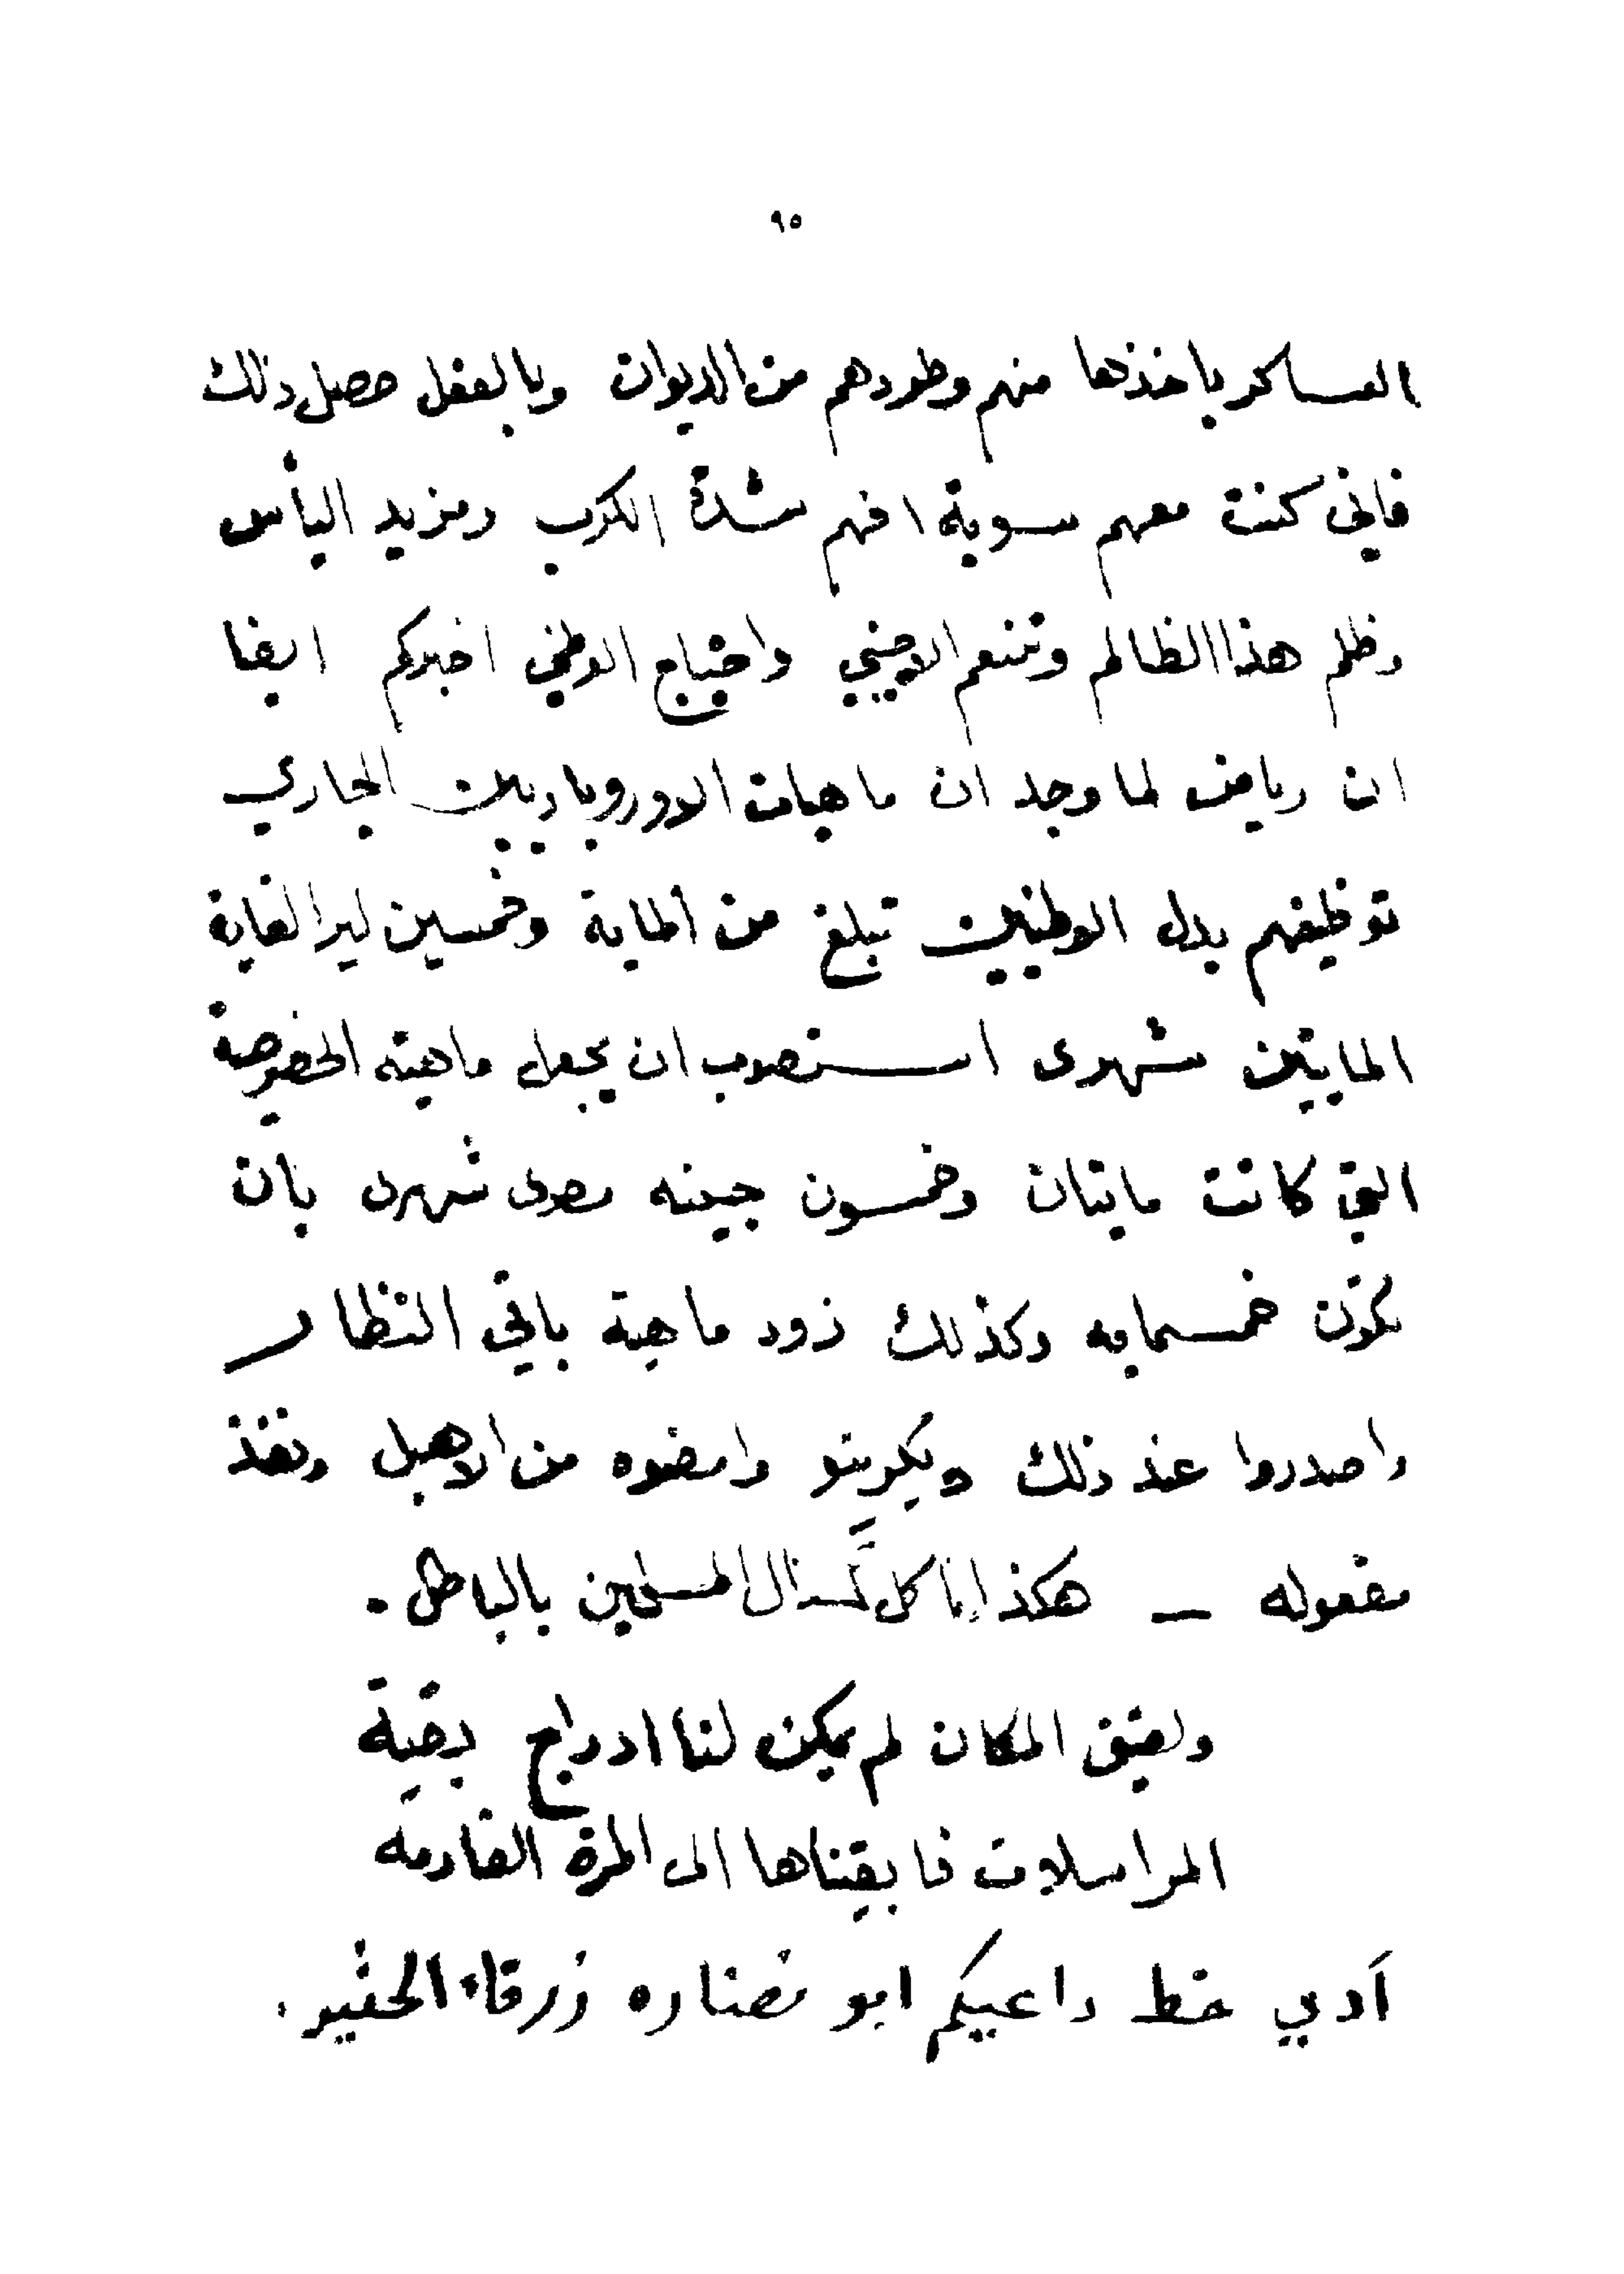 ٩٥
العساكر باخذها منهم وطردهم من الديوان وبالفعل حصل ذلك
فاني كنت معهم سوية افهم شدة الكرب ومزيد اليأس
وظلم هذا الظالم وتنعم الاجنبي واحتياج الوطني اخبركم ايضا
ان رياض لما وجد ان ماهيات الاوروباويين الجاري
توظيفهم بدل الوطنيين تبلغ من الماية وخمسين ليرا لغاية
المايتين شهرى استصوب ان يجعل ماهيته الخصوصية
التي كانت مايتان وخمسون جينه مصرى شهرى بان
تكون خمسمايه وكذلك زود ماهية باقي النظار
واصدروا عند ذلك ديكريتو وامضوه من الاهبل ونفذ
مفعوله – هكذا يا كل المسلمين بالباطل .
ولضيق المكان لم يمكن لنا ادراج بقية
المراسلات فابقيناها الى المرة القادمه
آدي خط داعيكم ابو نضاره زرقاء الحقير .